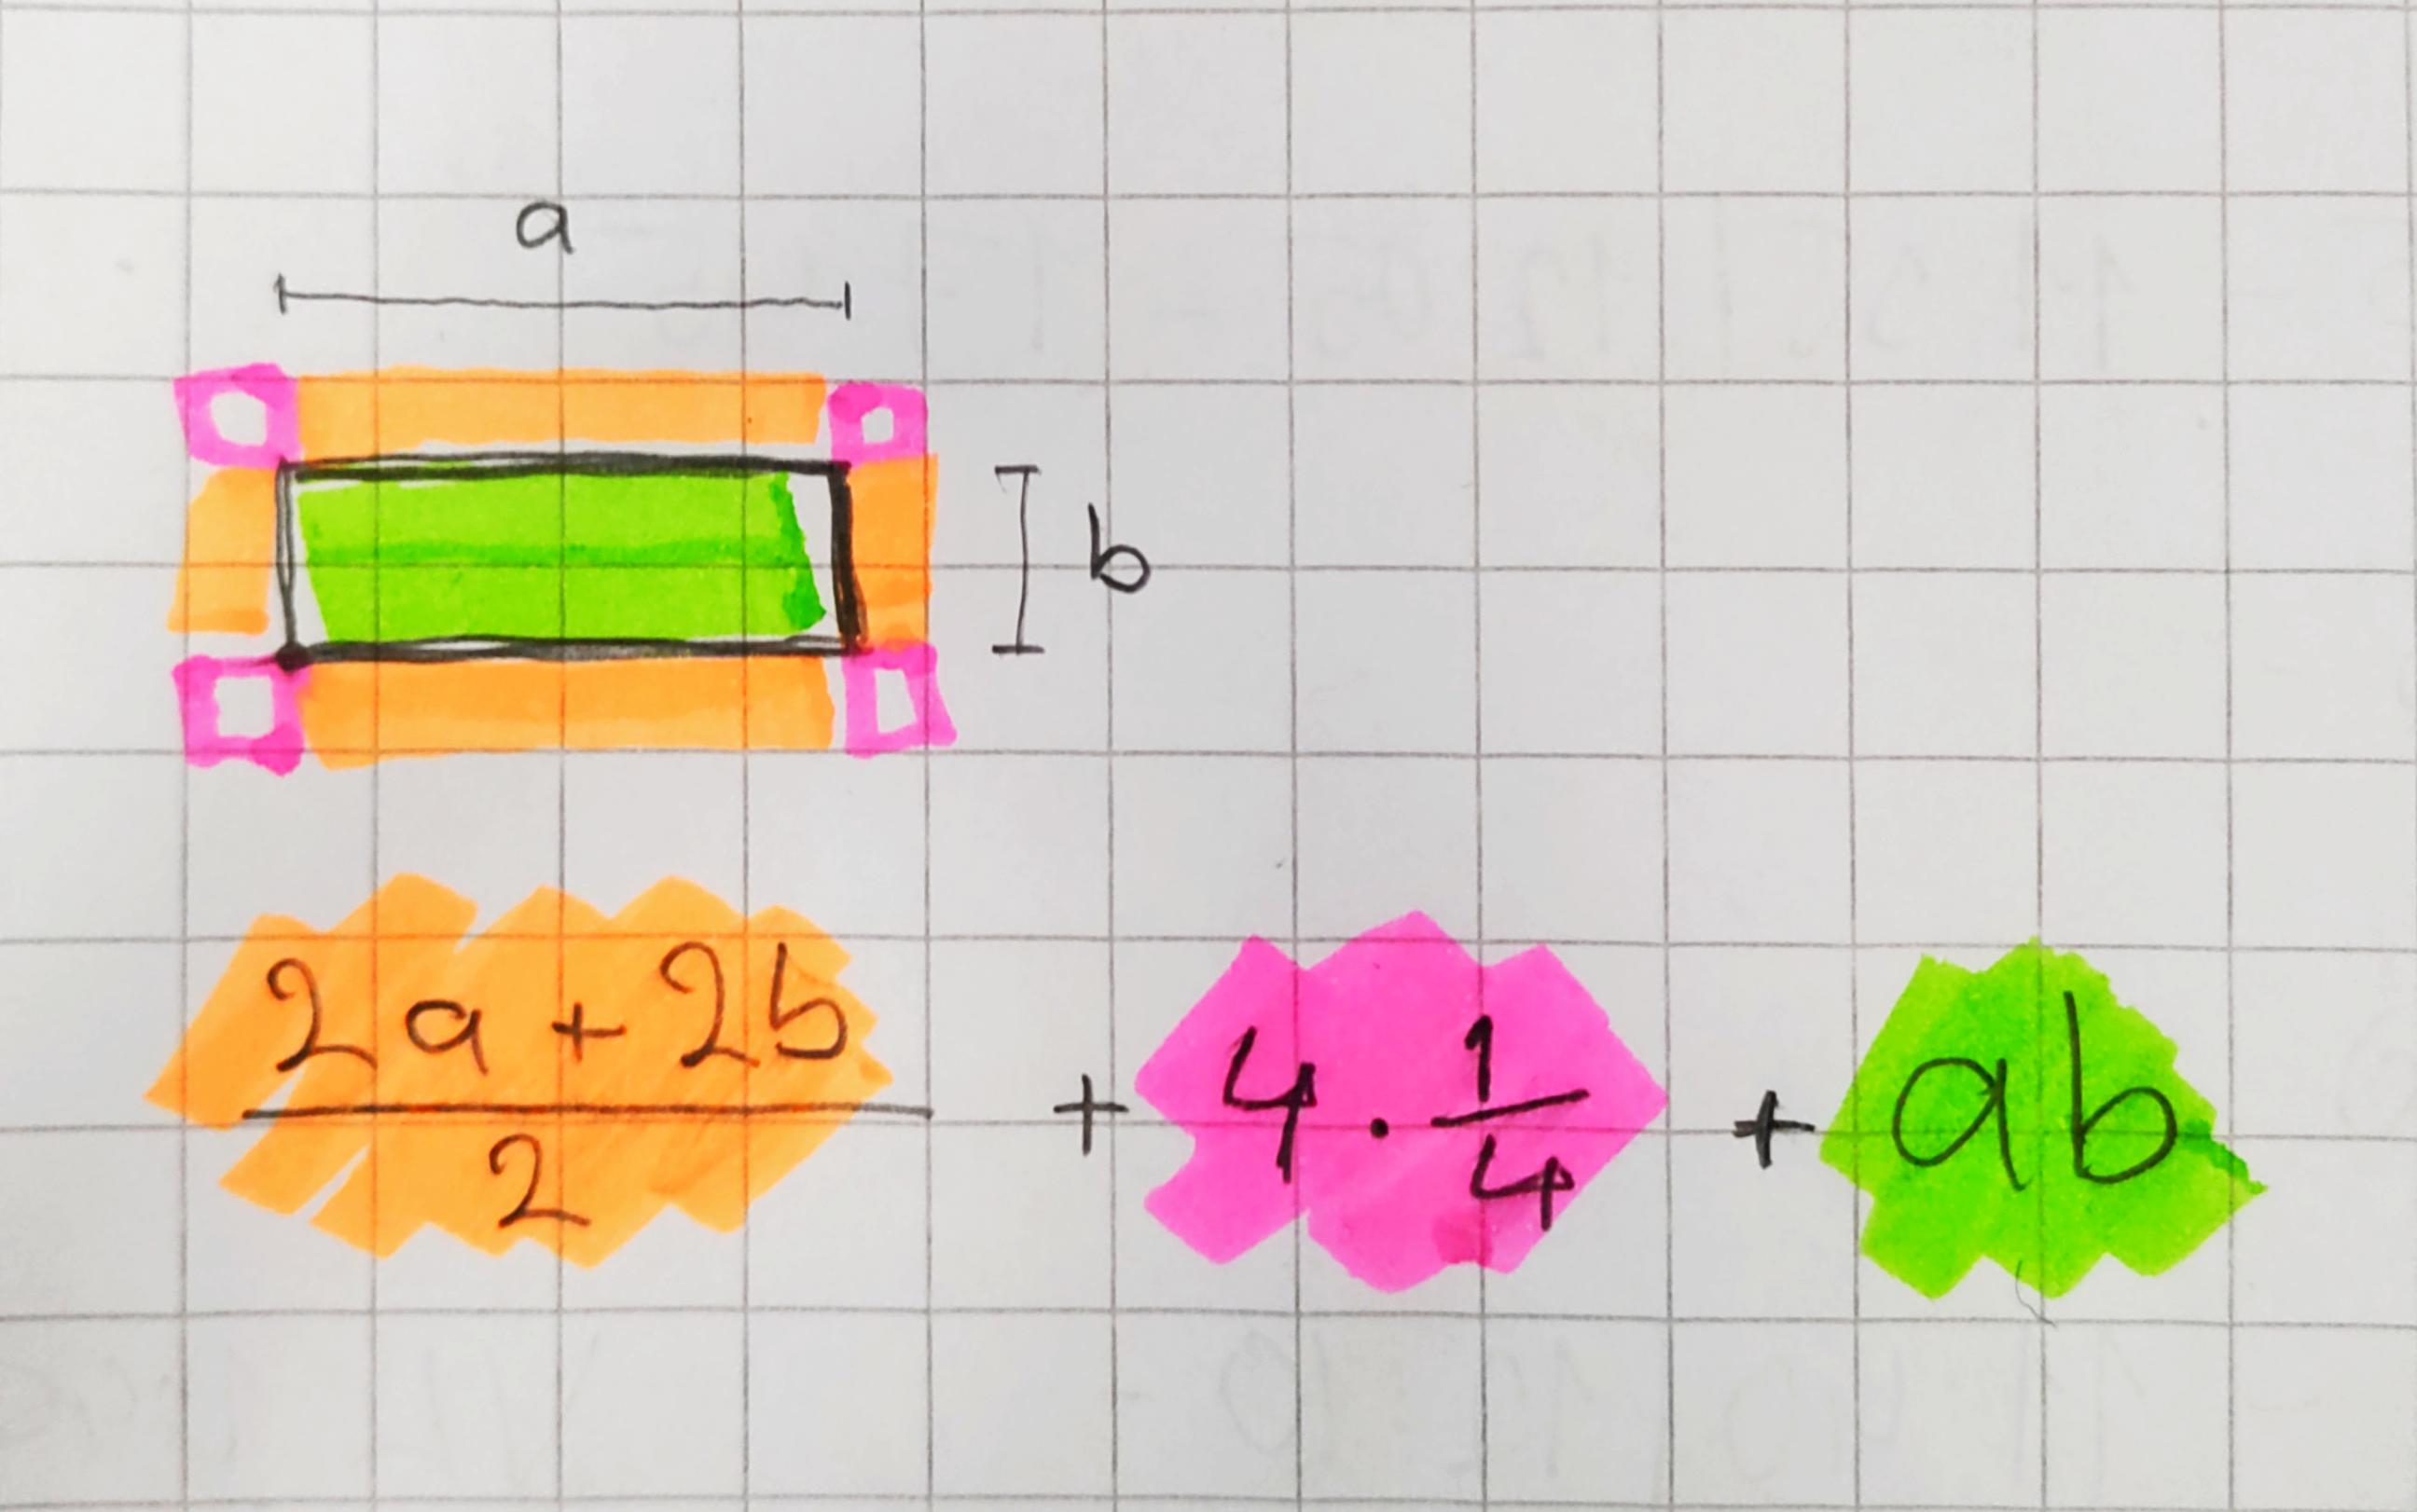 a
b
2a + 2b / 2 + 4 · 1/4 + ab